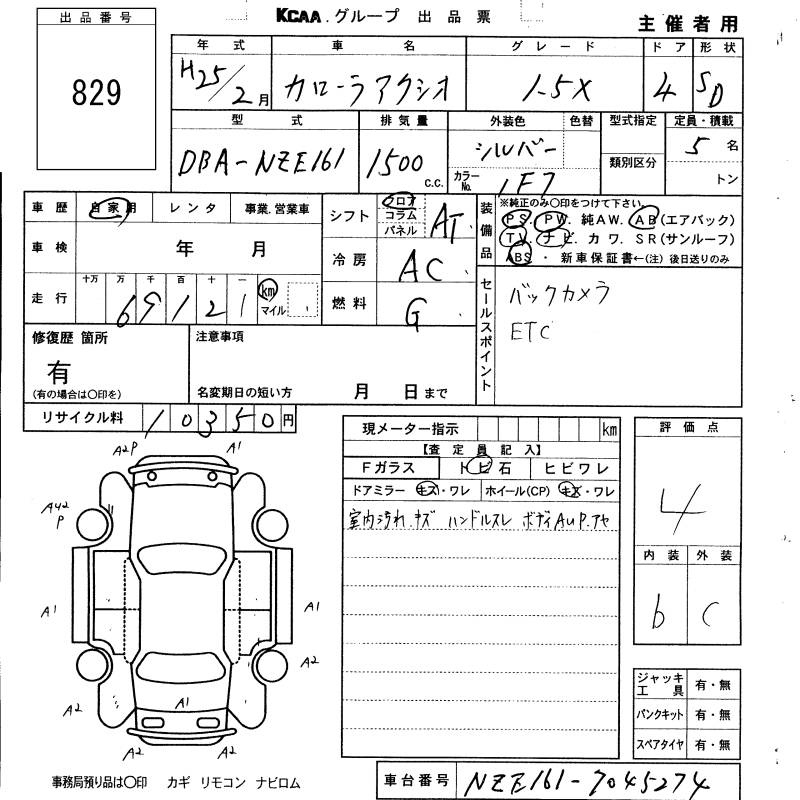 出品番号
829
KCAA.グループ 出品票
主催者用
年式 車名 グレード ドア 形状
H25/2月 カローラアクシオ 1.5X 4 SD
型式 排気量 外装色 色替 型式指定 定員・積載
DBA-NZE161 1500 C.C. シルバー 類別区分 5名
カラーNo. 1F7 トン
車歴 自家用 レンタ 事業.営業車
車検 年 月
走行 十万 万 千 百 十 一
6 9 1 2 1 km マイル
シフト フロア コラム パネル AT
冷房 AC
燃料 G
装備品
※純正のみ〇印をつけて下さい
PS. PW. 純AW. AB(エアバック)
TV. ナビ. カワ. SR(サンルーフ)
ABS ・ 新車保証書←(注) 後日送りのみ
セールスポイント
バックカメラ
ETC
修復歴 箇所
有
(有の場合は〇印を)
注意事項
名変期日の短い方 月 日まで
リサイクル料 10350円
現メーター指示 km
【査定員記入】
Fガラス トビ石 ヒビワレ
ドアミラー キズ・ワレ ホイール(CP) キズ・ワレ
室内汚れ.キズ ハンドルスレ ボディAUP.アセ
評価点
4
内装 外装
b C
ジャッキ工具 有・無
パンクキット 有・無
スペアタイヤ 有・無
A2P A1
A42P
A1 A1
A2
A2 A1 A2
A2 A2
事務局預り品は〇印 カギ リモコン ナビロム
車台番号 NZE161-7045274